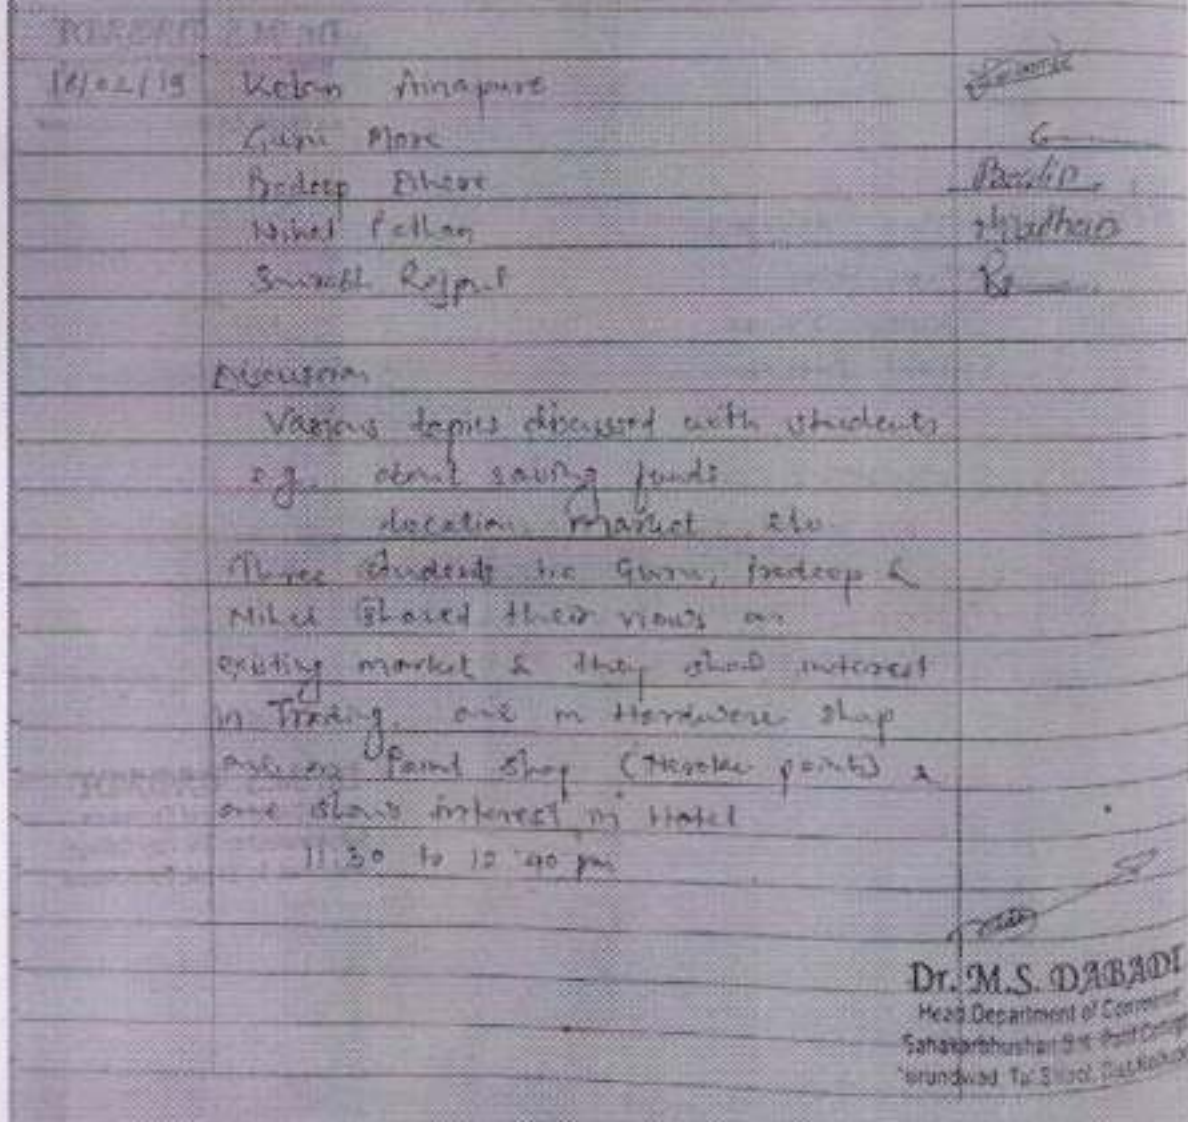 18/02/19 Ketan Ainapure
More
Pradeep
Nihal
Saurabh Rajput
Discussion
Various topics discussed with students
e.g. about saving funds
location, market etc
Three students i.e Guru, Pradeep &
Nihal shared their views on
existing market & they show interest
in Trading. one in Hardware shop
paint shop &
one show interest in Hotel
11:30 to 12:40 pm
Dr. M.S. DABADE
Head Department of Commerce
Sahakarbhushan S.K. Patil College
Tal Shirol,